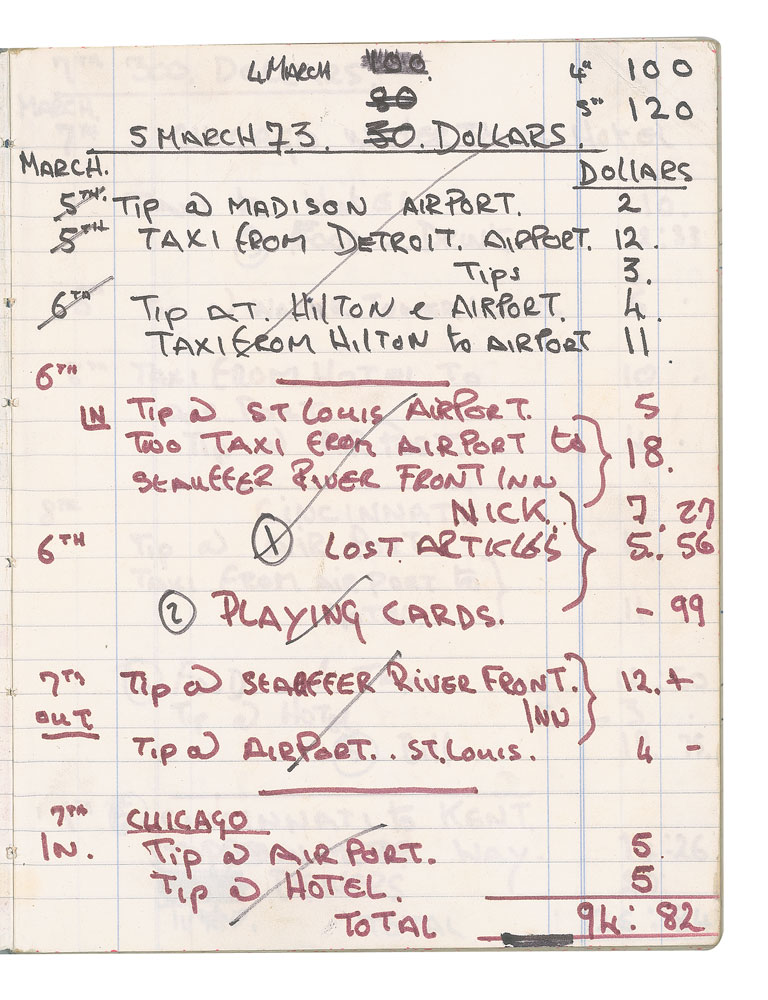 4 MARCH 100. 4TH 100
80 5TH 120
5 MARCH 73. 50. DOLLARS.
MARCH. DOLLARS
5TH. TIP @ MADISON AIRPORT. 2
5TH TAXI FROM DETROIT. AIRPORT. 12.
TIPS 3.
6TH TIP AT. HILTON & AIRPORT. 4.
TAXI FROM HILTON to AIRPORT 11.
6TH
IN TIP @ ST LOUIS AIRPORT. 5
TWO TAXI FROM AIRPORT to
STAUFFER RIVER FRONT INN 18.
NICK. 7. 27
6TH 1 LOST. ARTICLES 5. 56
2 PLAYING CARDS. - 99
7TH TIP @ STAUFFER RIVER FRONT. 12.+
OUT INN
TIP @ AIRPORT.. ST. LOUIS. 4 -
7TH CHICAGO
IN. TIP @ AIR PORT. 5.
TIP @ HOTEL. 5
TOTAL 94: 82